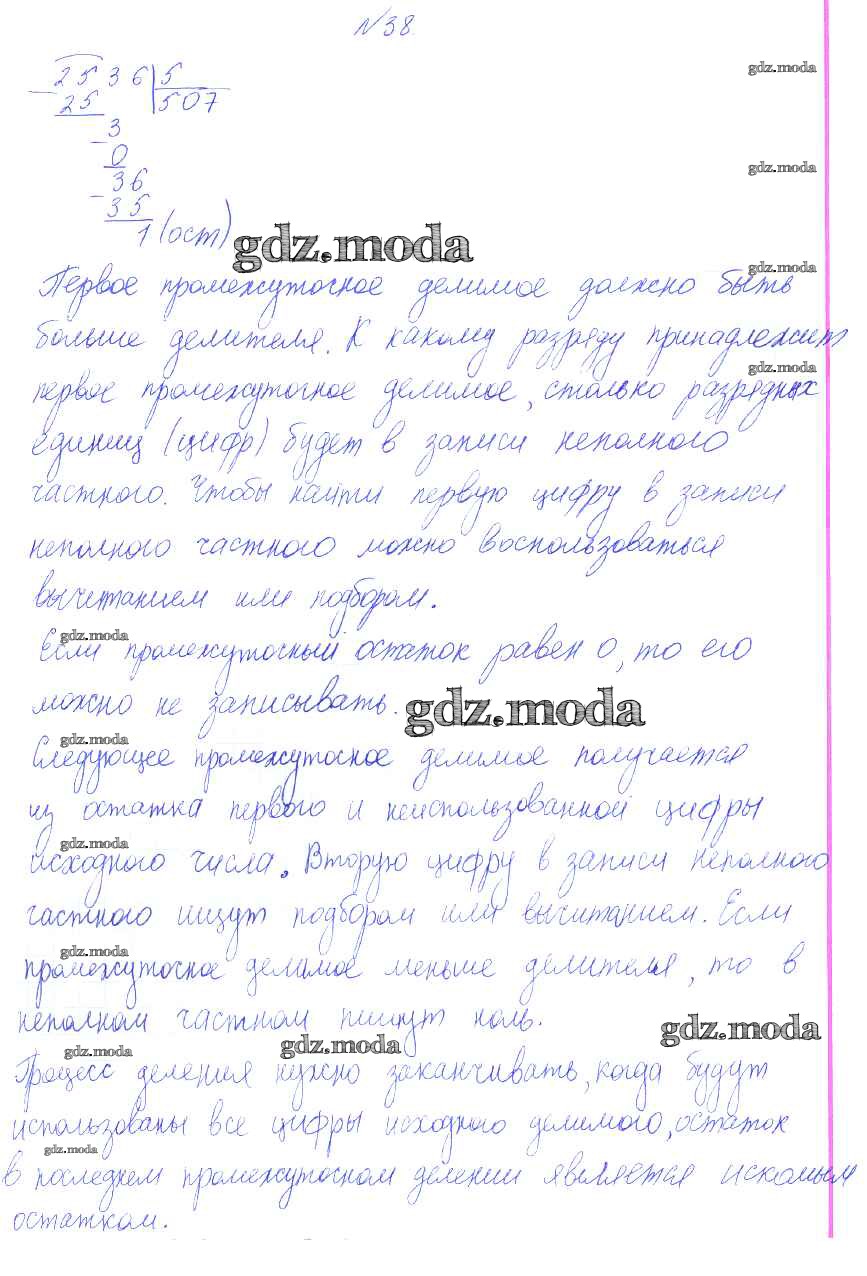 №38
gdz.moda
2536 5
25 507
3
0
gdz.moda
36
35
1 (ост)
gdz.moda
gdz.moda
Первое промежуточное делимое должно быть
больше делителя. К какому разряду принадлежит
gdz.moda
первое промежуточное делимое, столько разрядных
единиц (цифр) будет в записи неполного
частного. Чтобы найти первую цифру в записи
неполного частного можно воспользоваться
вычетанием или подбором.
gdz.moda
Если промежуточный остаток равен 0, то его
можно не записывать.
gdz.moda
gdz.moda
Следующее промежутосное делимое получается
из остатка первого и неиспользованной цифры
gdz.moda
исходного числа. Вторую цифру в записи неполного
частного ищут подбором или вычитанием. Если
gdz.moda
промежутосное делимое меньше делителя, то в
неполном частном пишут ноль.
gdz.moda
gdz.moda
gdz.moda
Процесс деления нужно заканчивать, когда будут
использованы все цифры исходного делимого, остаток
gdz.moda
в последнем промежутосном делении является искомым
остатком.